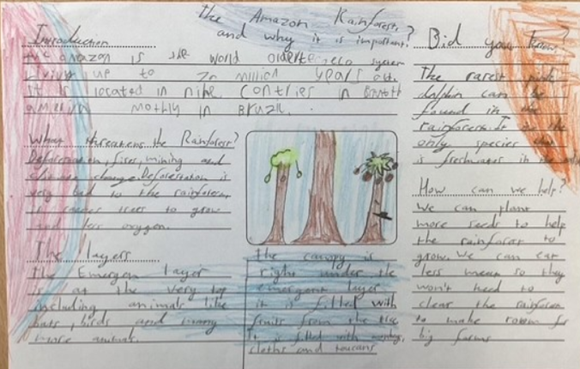 The Amazon Rainforest,
and why it is important?
Introduction
The amazon is the world
living up to million years
It is located in nine Contries in
mothly in Brazil.
What threatens the Rainforest?
Deforestation, fires, mining and
change. Deforestation is
very bad to the rainforest
trees to grow
and less oxygen.
The layers
The Emergen layer
is at the very top
including animals like
bats, birds and many
more animals.
the canopy is
right under the
emergent layer
it is filled with
fruits from the tree
It is filled with monkeys,
sloths and toucans
Did you know?
The rarest pink
dolphin can be
found in the
rainforest. It is the
only species that
is freshwater in the
How can we help?
We can plant
more seeds to help
the rainforest to
grow. We can eat
less meat so they
won't need to
clear the rainforest
to make room for
big farms